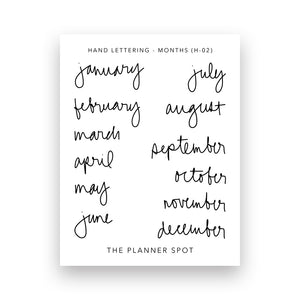 HAND LETTERING - MONTHS (H-02)
january
february
march
april
may
june
july
august
september
october
november
december
THE PLANNER SPOT